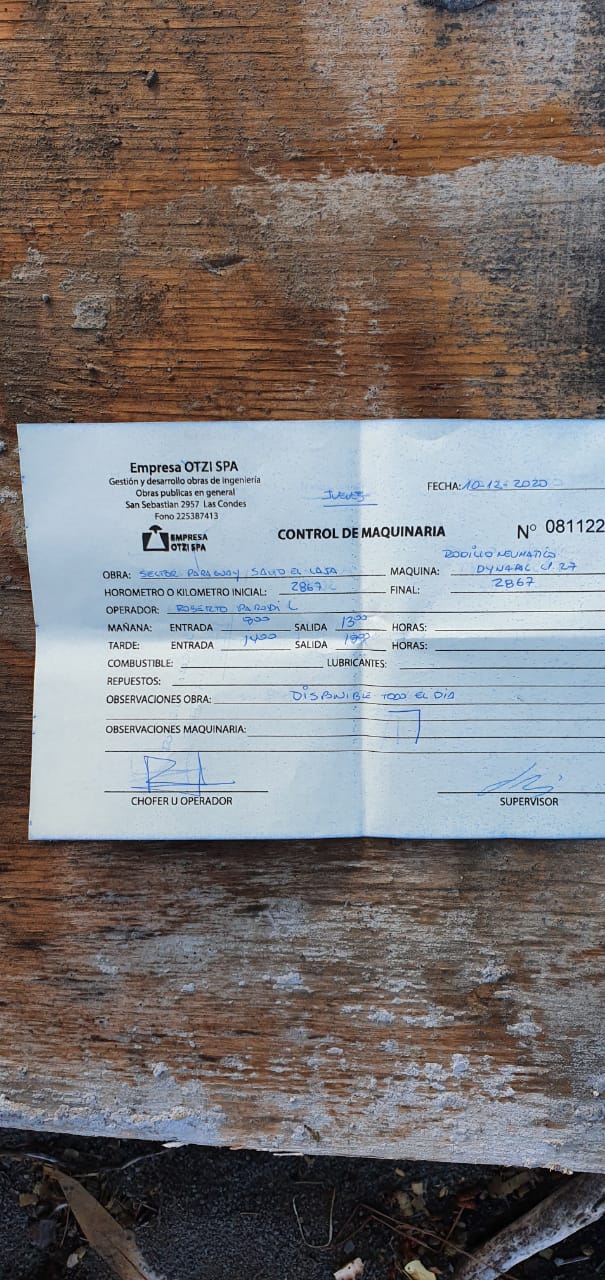 Empresa OTZI SPA
Gestión y desarrollo obras de ingeniería
Obras publicas en general
San Sebastian 2957 Las Condes
Fono 225387413
EMPRESA
OTZI SPA
JUEVES
FECHA: 10-12-2020
CONTROL DE MAQUINARIA
N° 081122
OBRA: SECTOR PARAGUAY, SALTO EL LAJA
RODILLO NEUMATICO
MAQUINA: DYNAPAC
HOROMETRO O KILOMETRO INICIAL: 2867
FINAL: 2867
OPERADOR: ROBERTO
MAÑANA: ENTRADA 800 SALIDA 1300 HORAS:
TARDE: ENTRADA 1400 SALIDA HORAS:
COMBUSTIBLE: LUBRICANTES:
REPUESTOS:
OBSERVACIONES OBRA: DISPONIBLE TODO EL DIA
OBSERVACIONES MAQUINARIA:
CHOFER U OPERADOR
SUPERVISOR